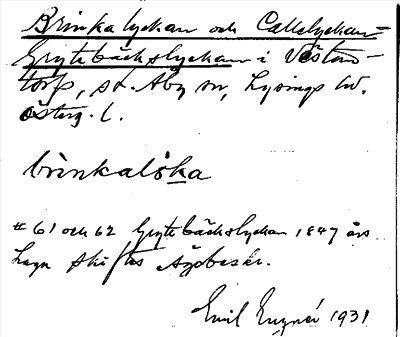 Brinkalyckan och Callelyckan=
Grytebäckslyckan i Västan-
torp, st. Åby sn, Lysings hd.
Österg. l.
brinkalöka
# 61 och 62 Grytebäckslyckan 1847 års
Laga skiftes Ägobeskr.
Emil 1931